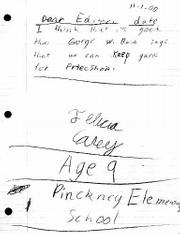 11-1-00
Dear Editer date
I think that it's good
that George W. Bush
that we can keep guns
for Protecshon.
Felicia
Carey
Age 9
Pinckney Elementary
School